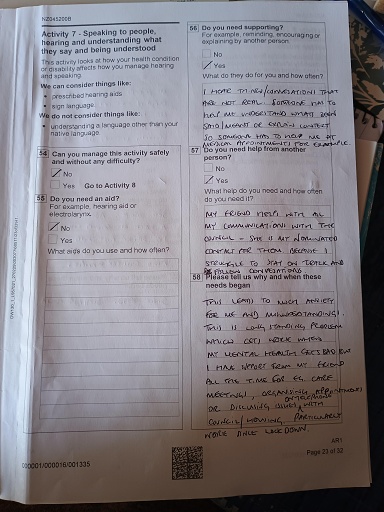 NZ045200B
Activity 7 - Speaking to people,
hearing and understanding what
they say and being understood
This activity looks at how your health condition
or disability affects how you manage hearing
and speaking
We can consider things like:
• prescribed hearing aids
• sign language
We do not consider things like:
• understanding a language other than your
native language
54 Can you manage this activity safely
and without any difficulty?
No
Yes Go to Activity 8
55 Do you need an aid?
For example, hearing aid or
electrolarynx.
No
Yes
What aids do you use and how often?
56 Do you need supporting?
For example, reminding, encouraging or
explaining by another person
No
Yes
What do they do for you and how often?
I HEAR THINGS/CONVERSATIONS THAT
ARE NOT REAL. SOMEONE HAS TO
HELP ME UNDERSTAND WHAT BEEN
SAID/MEANT OR EXPLAIN CONTEXT
SO SOMEONE HAS TO HELP ME AT
MEDICAL APPOINTMENTS FOR EXAMPLE.
57 Do you need help from another
person?
No
Yes
What help do you need and how often
do you need it?
MY FRIEND HELPS WITH ALL
MY COMMUNICATIONS WITH THE
COUNCIL - SHE IS MY NOMINATED
CONTACT FOR THEM BECAUSE I
STRUGGLE TO STAY ON TRACK AND
FOLLOW CONVERSATIONS
58 Please tell us why and when these
needs began
THIS LEADS TO MUCH ANXIETY
FOR ME AND MISUNDERSTANDINGS.
THIS IS LONG STANDING PROBLEM
WHICH GETS WORSE WHEN
MY MENTAL HEALTH GETS BAD
I HAVE SUPPORT FROM MY FRIEND
ALL THE TIME FOR EG. CARE
MEETINGS, ORGANISING APPOINTMENTS
OR DISCUSSING ISSUES ON TELEPHONE WITH
COUNCIL/HOUSING. PARTICULARLY
WORSE SINCE LOCKDOWN.
AR1
Page 23 of 52
00001/000016/001335